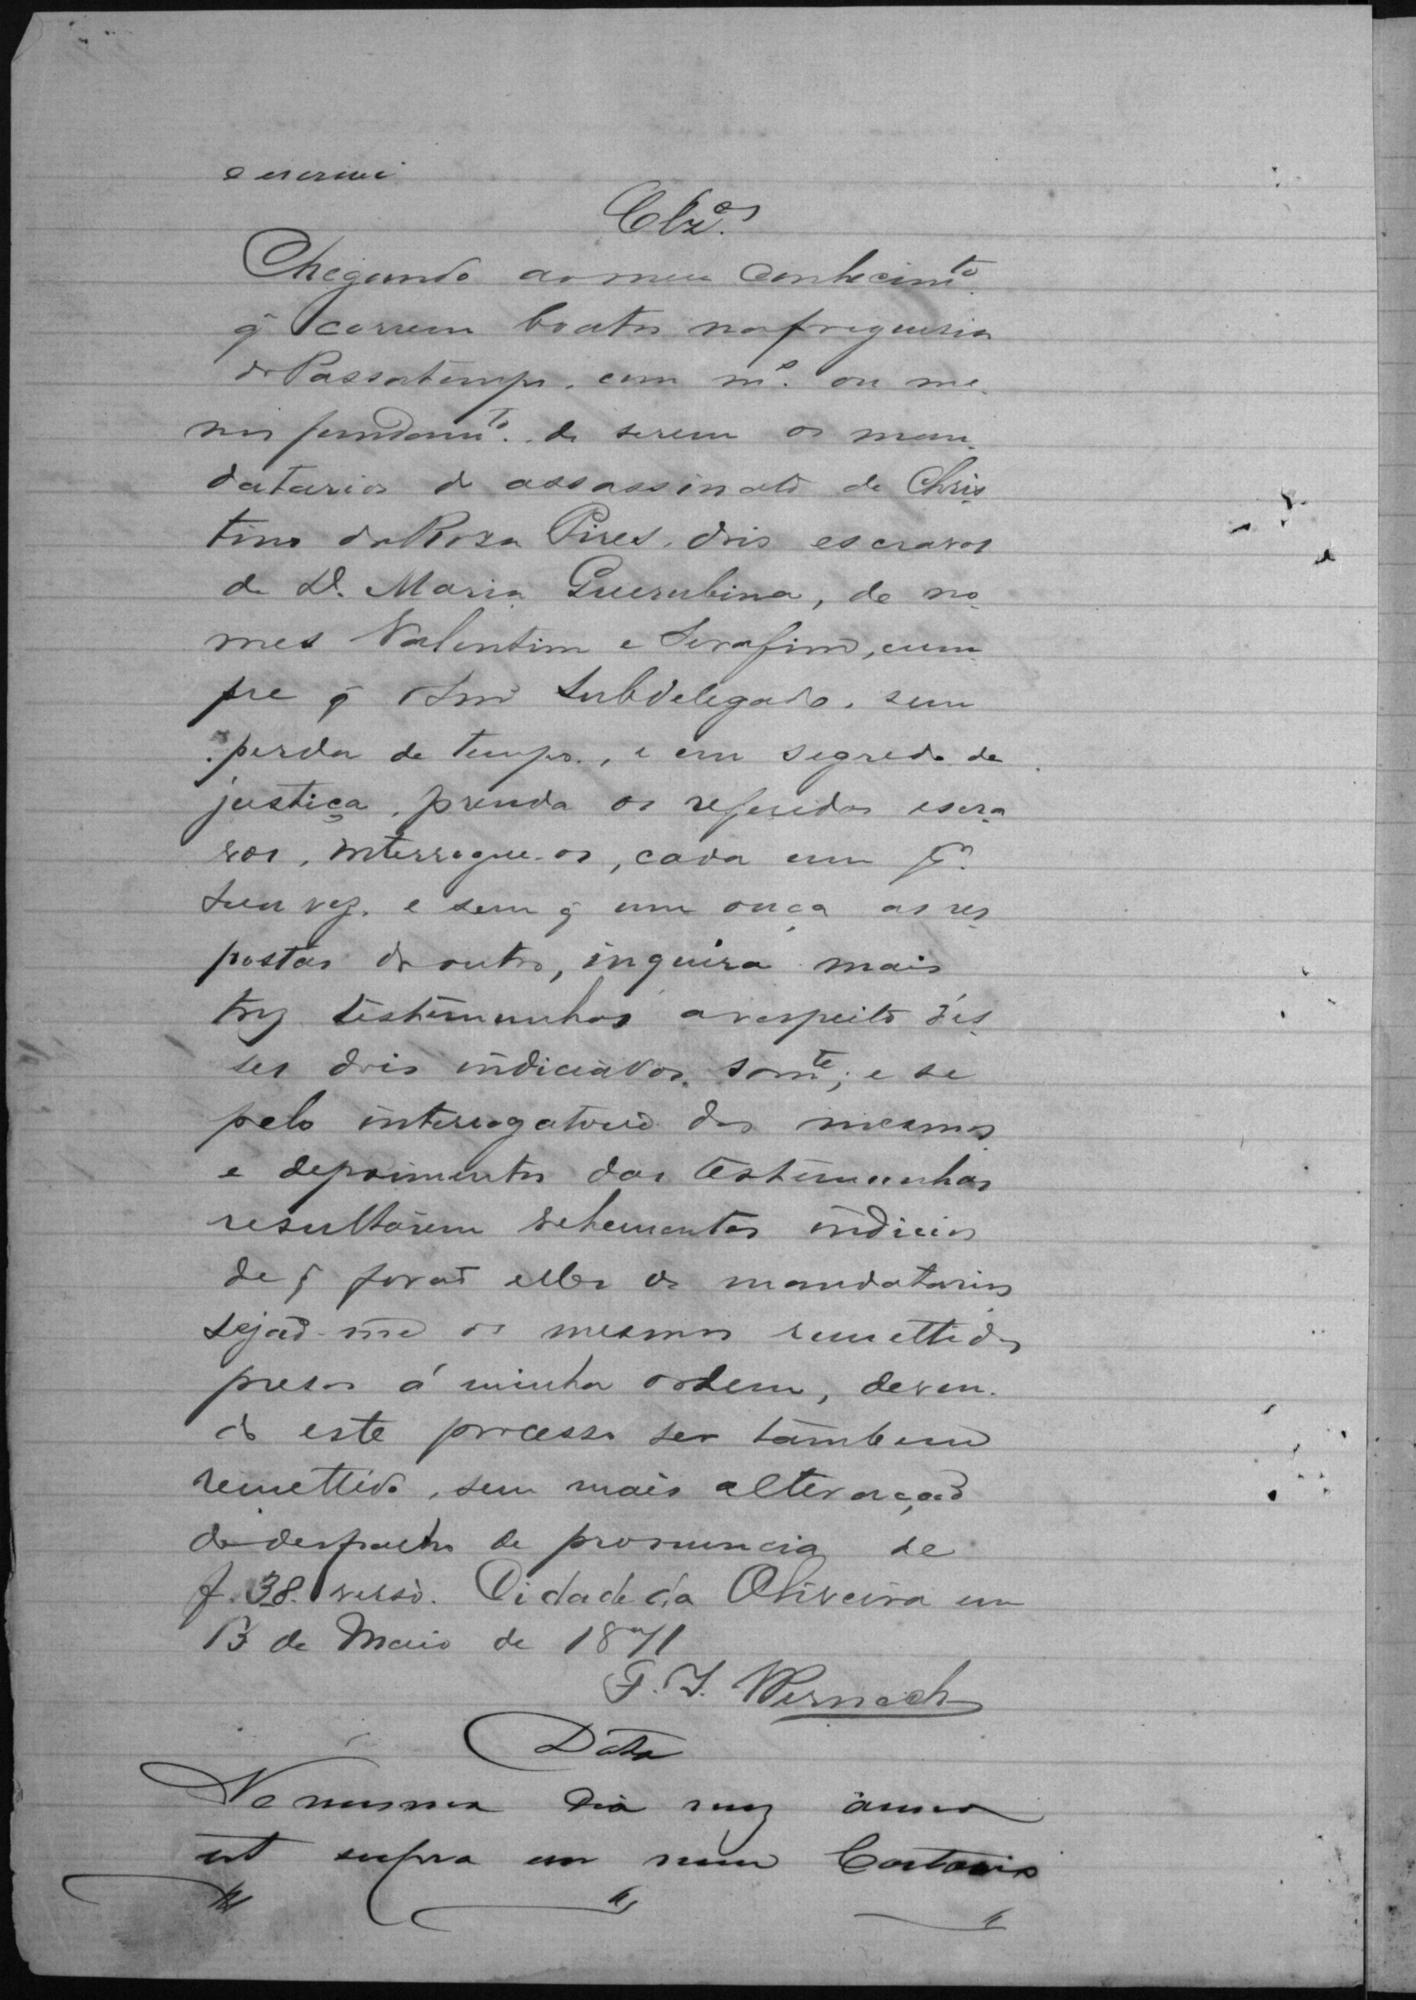 e escrevi
Clzos.
Chegando ao meu conhecimto.
q̃ correm boatos na freguesia
do Passatempo, com ms. ou me-
nos fundamto. de serem os man-
datarios do assassinato de Chris-
tino da Roza Pires, dois escravos
de D. Maria Querubina, de no-
mes Valentim e Serafim, cum-
pre q̃ o Snr. Subdelegado, sem
perda de tempo, e em segredo de
justiça, prenda os referidos escra-
vos, interrogue-os, cada um pr.
sua vez, e sem q̃ um ouça as res-
postas do outro, inquira mais
trez testemunhas a respeito d'es-
ses dois indiciados somte; e se
pelo interrogatorio dos mesmos
e depoimentos das testemunhas
resultarem vehementes indicios
de q̃ forão elles os mandatarios
sejão-me os mesmos remettidos
presos á minha ordem, deven-
do este processo ser tambem
remettido, sem mais alteração
do despacho de pronuncia de
f. 38 verso. Cidade da Oliveira em
13 de Maio de 1871
F. I. Wernech
Data
No mesmo dia mez anno
ut supra em meu Cartorio